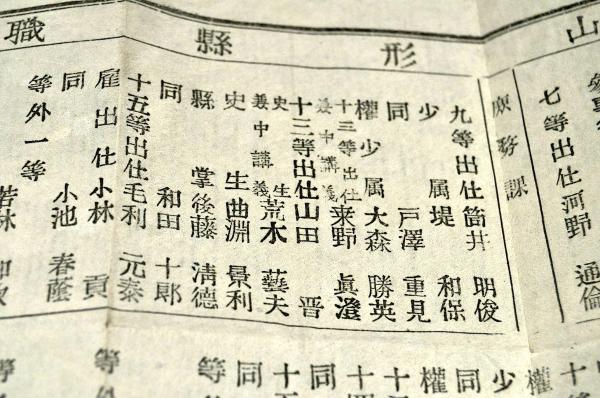 山形縣職
七等出仕河野 通倫
庶務課
九等出仕筒井 明俊
少属堤 和保
同 戸澤 重見
權少属大森 勝英
十三等出仕 兼中講義 来野 眞澄
十三等出仕山田 晋
史生 兼中講義 荒木 藝夫
史生曲淵 景利
縣掌後藤 清德
同 和田 十郎
十五等出仕毛利 元泰
雇出仕小林 貢
同 小池 春蔭
等外一等 若林
少
權
同
權
十
十
同
十
同
等
等外